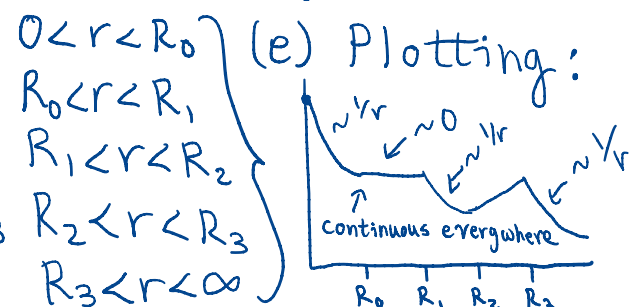 0<r<R₀
R₀<r<R₁
R₁<r<R₂
R₂<r<R₃
R₃<r<∞
(e) Plotting:
~1/r
~0
~1/r
~1/r
continuous everywhere
R₀ R₁ R₂ R₃